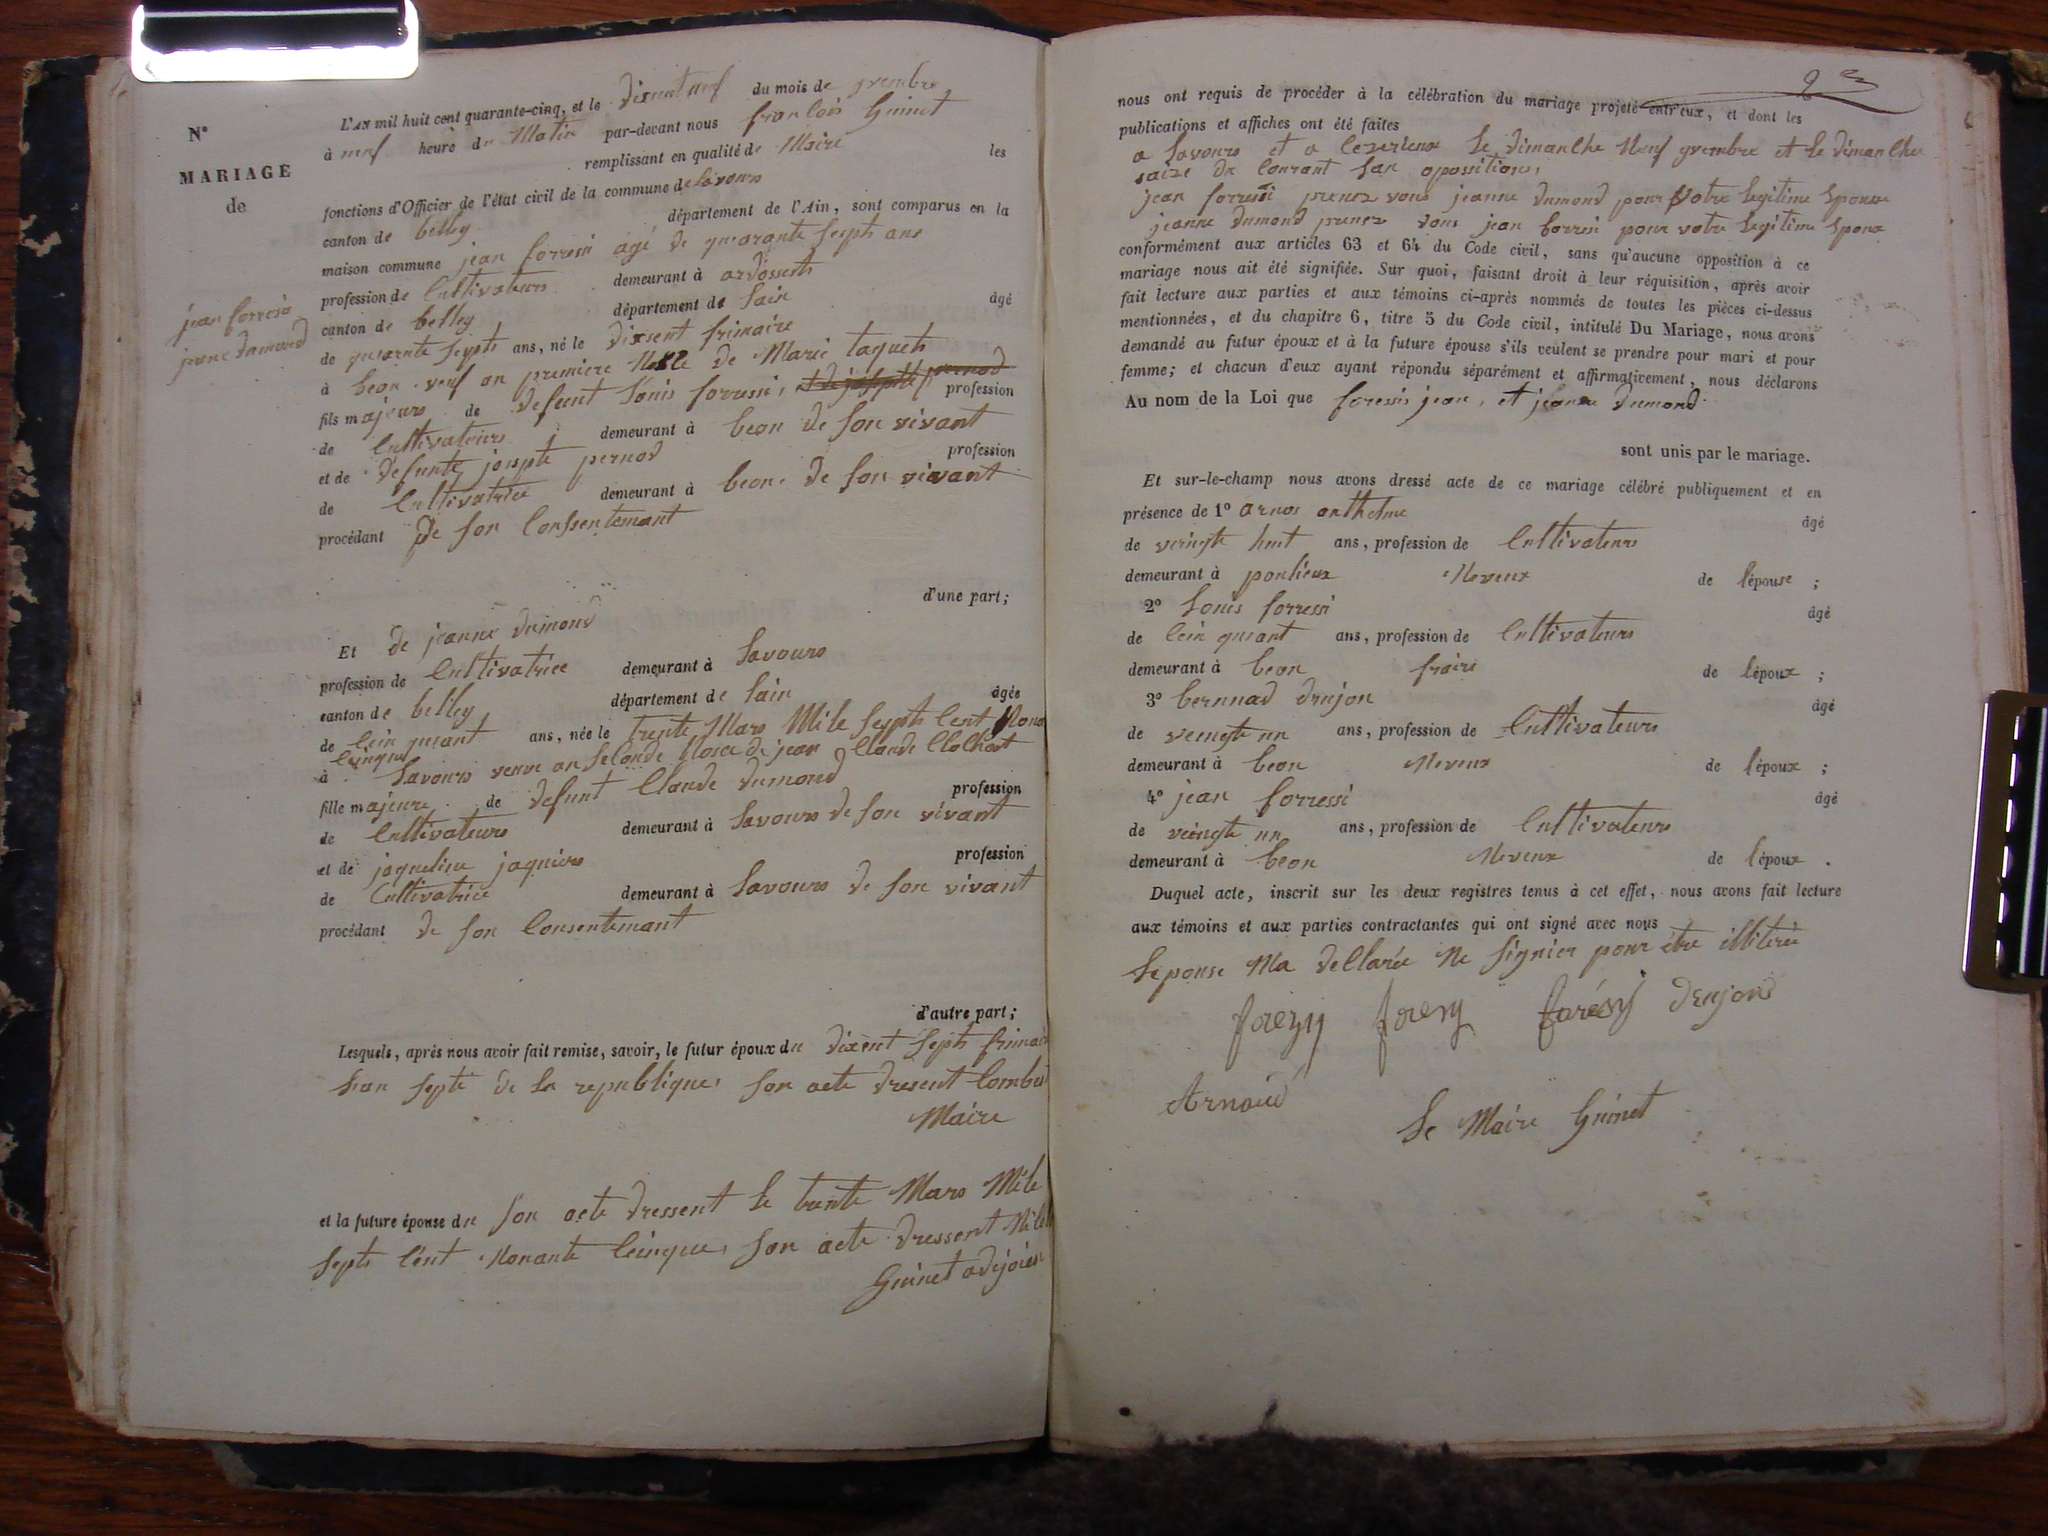 N°
MARIAGE
de
jean forresi
jeane dumond
L'AN mil huit cent quarante-cinq, et le dixneuf du mois de 9vembre
à neuf heure du Matin par-devant nous francois Guinet
remplissant en qualité de Maire les
fonctions d'Officier de l'état civil de la commune de Lavours
canton de belley département de l'Ain, sont comparus en la
maison commune jean forresi agé de quarante septs ans
profession de Cultivateurs demeurant à
canton de belley département de Lain âgé
de quarante septs ans, né le dixsept frimaire
à beon veuf an premiere de Marie taquets
fils majeurs de defeunt Louis forressi, pernod profession
de Cultivateurs demeurant à beon de son vivant
et de defunte josepte pernod profession
de Cultivatrice demeurant à beon de son vivant
procédant De son Conssentemant
d'une part;
Et de jeanne dumond
profession de Cultivatrice demeurant à Lavours
canton de belley département de Lain âgée
de Cein quant ans, née le trente Mars Mile septs Cent Nona
Ceinque
à Lavours veuve an seConde Nosce de jean Claude
fille majeure de defunt Claude dumond profession
de Cultivateurs demeurant à Lavours de son vivant
et de jaqueline jaquiers profession
de Cultivatrice demeurant à Lavours de son vivant
procédant de son Consentemant
d'autre part;
Lesquels, après nous avoir fait remise, savoir, le futur époux du septs frimair
Lan septe de La republique, son acte dresent Combet
Maire
et la future épouse du son acte dressent Le trante Mars Mile
septs Cént Nonante Ceinque, son acte dressent
Guinet adjoien
nous ont requis de procéder à la célébration du mariage projeté entr'eux, et dont les
publications et affiches ont été faites
a Lavours et a Ceserieux Le dimanChe Neuf 9vembre et Le dimanChe
saize du Courant san opossitions,
jean forressi prenez vous jeanne dumond pour Votre Legitime Epouse
jeanne dumond prenez vous jean forresi pour votre Legitime Epoux
conformément aux articles 63 et 64 du Code civil, sans qu'aucune opposition à ce
mariage nous ait été signifiée. Sur quoi, faisant droit à leur réquisition, après avoir
fait lecture aux parties et aux témoins ci-après nommés de toutes les pièces ci-dessus
mentionnées, et du chapitre 6, titre 5 du Code civil, intitulé Du Mariage, nous avons
demandé au futur époux et à la future épouse s'ils veulent se prendre pour mari et pour
femme; et chacun d'eux ayant répondu séparément et affirmativement, nous déclarons
Au nom de la Loi que foressis jean, et jeanne dumond
sont unis par le mariage.
Et sur-le-champ nous avons dressé acte de ce mariage célébré publiquement et en
présence de 1° arnos anthelme âgé
de veingte huit ans, profession de Cultivateurs
demeurant à ponlieux Neveux de Lépouse ;
2° Louis forressi âgé
de Cein quant ans, profession de Cultivateurs
demeurant à beon fraire de Lépoux ;
3° bernnad drujon âgé
de veingte un ans, profession de Cultivateurs
demeurant à beon Neveux de Lépoux ;
4° jean forressi âgé
de veingte un ans, profession de Cultivateurs
demeurant à beon Neveux de Lépoux .
Duquel acte, inscrit sur les deux registres tenus à cet effet, nous avons fait lecture
aux témoins et aux parties contractantes qui ont signé avec nous
Lepouse Ma déClarée Ne signier pour être illiterée
drujond
Arnoud
Le Maire Guinet